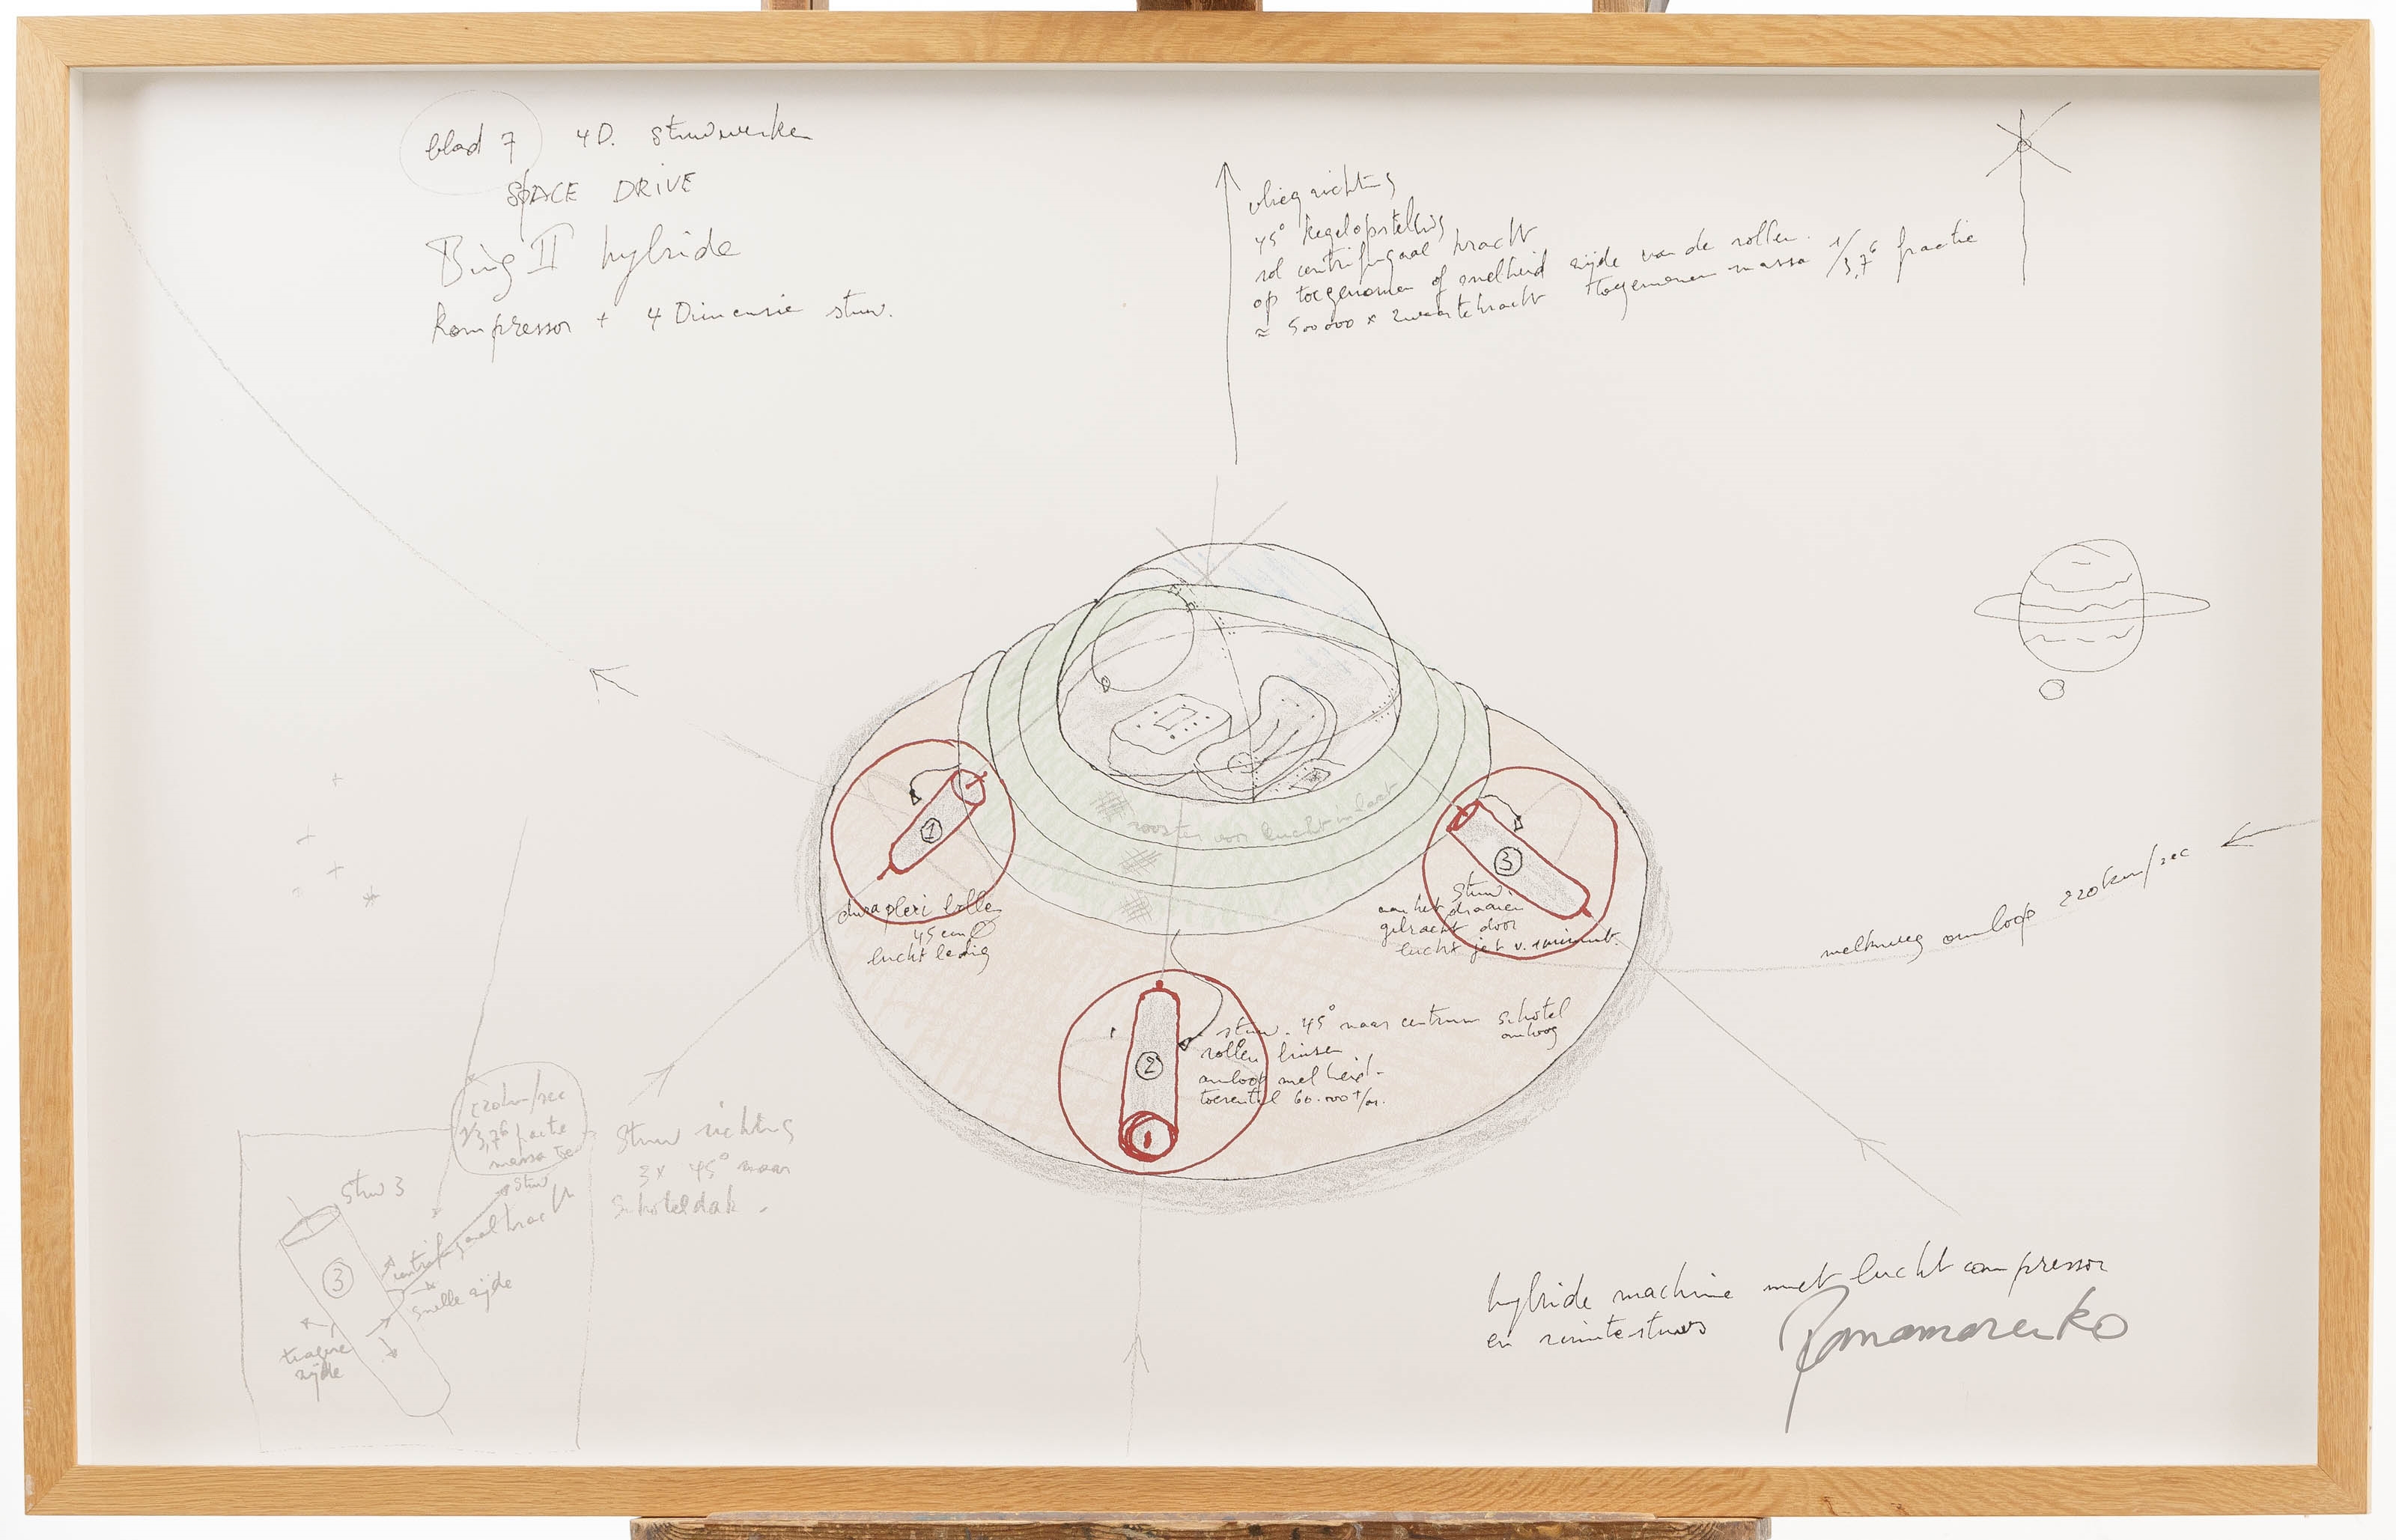 blad 7 4D. stuwwerken
SPACE DRIVE
Bing II hybride
Kompressor + 4 Dimensie stuw.
vliegrichting
45° kegelopstelling
rol centrifugaal kracht
op toegenomen of snelheid zijde van de rollen.
≈ 500000 x zwaartekracht toegenomen massa 1/3,7⁶ fractie
rooster voor lucht inlaat
1
plexi bolle
45 cm Ø
lucht ledig
3
stuw.
aan het draaien
gebracht door
lucht jet v.
2
stuw. 45° naar centrum schotel
omhoog
rollen
omloop snelheid-
toerental 60.000 t/m.
melkweg omloop 220km/sec
220km/sec
1/3,7⁶ fractie
massa toe
stuw richting
3x 45° naar
schoteldak.
stuw 3
stuw
centrifugaal kracht
3
snelle zijde
trage
zijde
hybride machine met lucht compressor
en ruimtestuws
Panamarenko